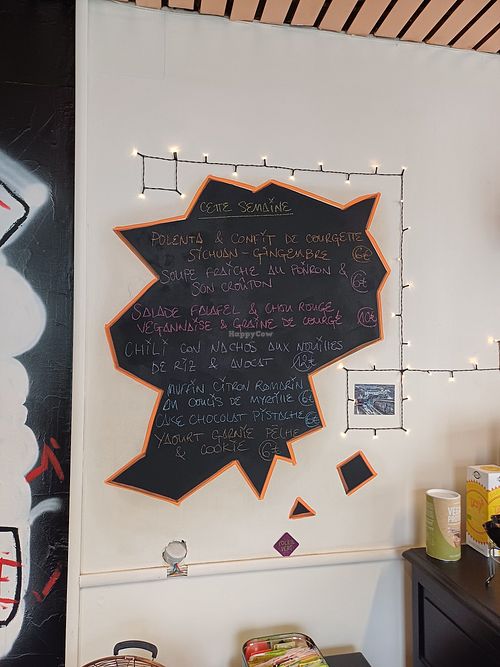 CETTE SEMAINE
POLENTA & CONFIT DE COURGETTE
SICHUAN - GINGEMBRE 6€
SOUPE FRAÎCHE AU POIVRON &
SON CROÛTON 6€
SALADE FALAFEL & CHOU ROUGE
VEGANNAISE & GRAINE DE COURGE 10€
CHILI CON NACHOS AUX NOUILLES
DE RIZ & AVOCAT 12€
MUFFIN CITRON ROMARIN
AU COULIS DE MYRTILLE 6€
CAKE CHOCOLAT PISTACHE 6€
YAOURT GARNIE PÊCHE
& COOKIE 6€
HappyCow